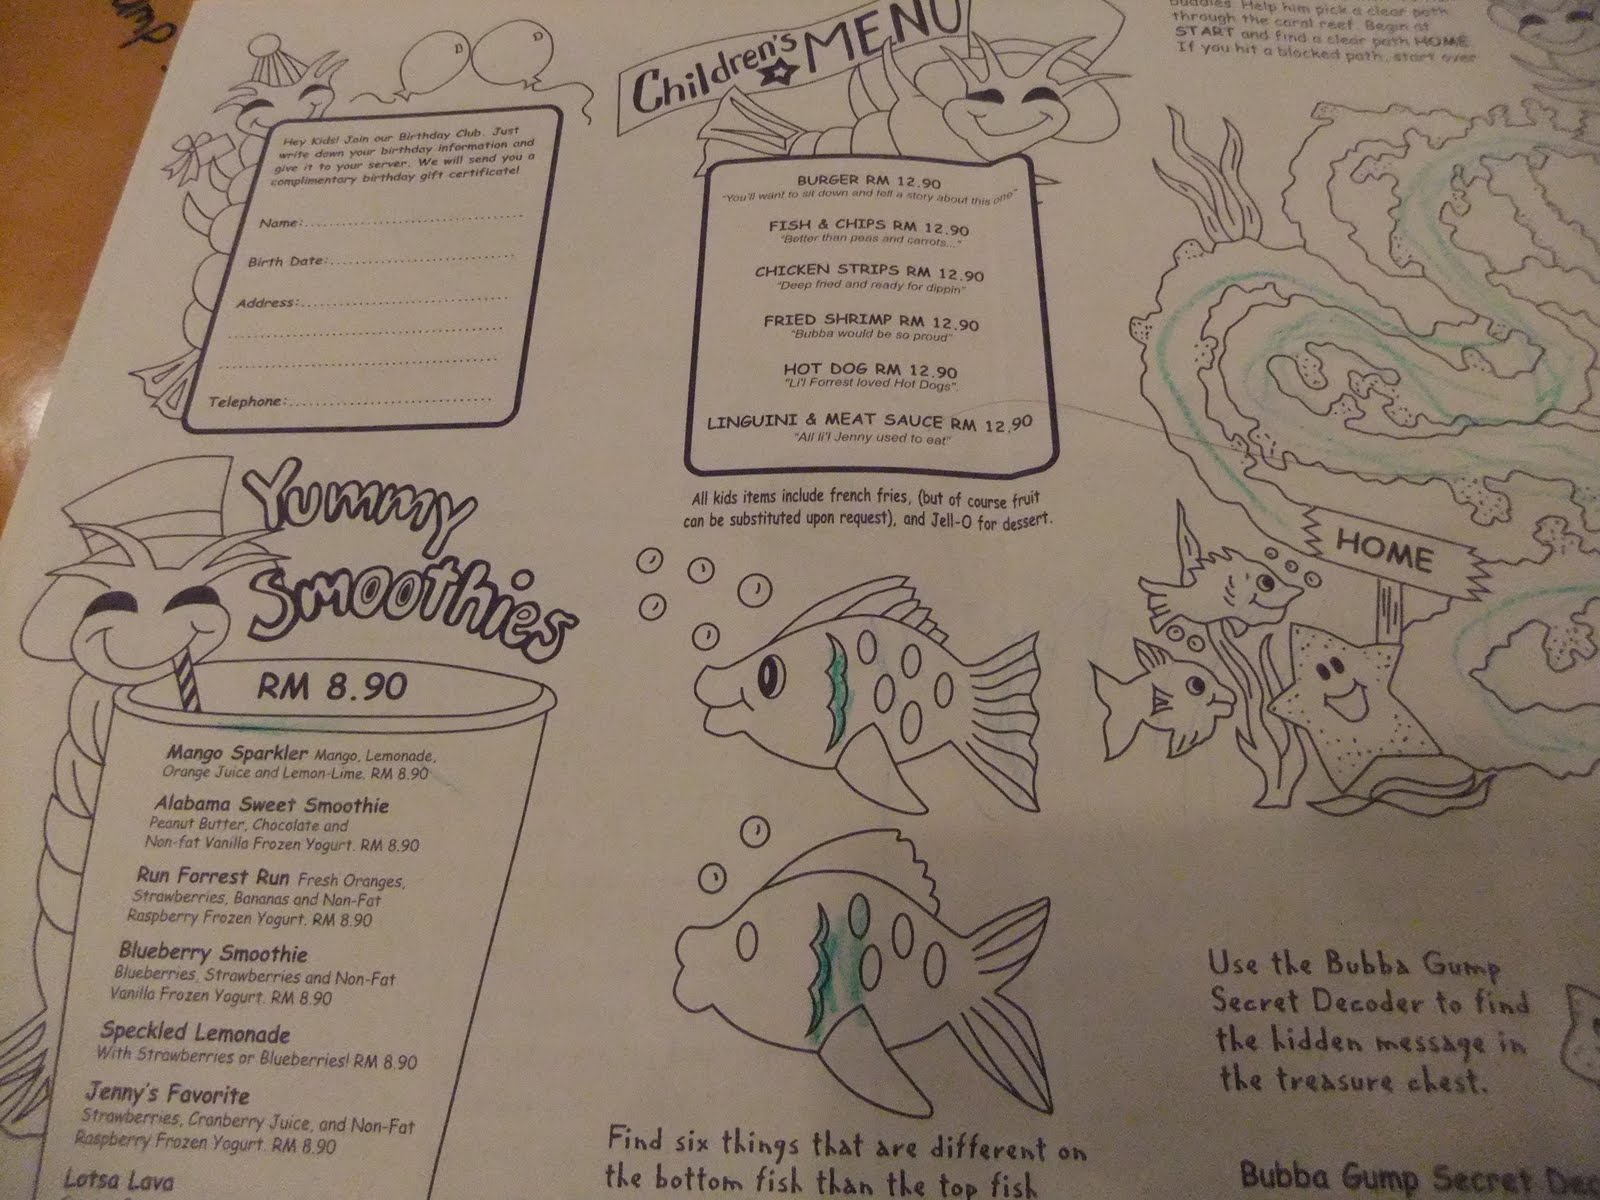 Hey Kids! Join our Birthday Club. Just
write down your birthday information and
give it to your server. We will send you a
complimentary birthday gift certificate!
Name:
Birth Date:
Address:
Telephone:
Children's MENU
BURGER RM 12.90
"You'll want to sit down and tell a story about this one"
FISH & CHIPS RM 12.90
"Better than peas and carrots..."
CHICKEN STRIPS RM 12.90
"Deep fried and ready for dippin"
FRIED SHRIMP RM 12.90
"Bubba would be so proud"
HOT DOG RM 12.90
"Li'l Forrest loved Hot Dogs".
LINGUINI & MEAT SAUCE RM 12.90
"All li'l Jenny used to eat"
All kids items include french fries, (but of course fruit
can be substituted upon request), and Jell-O for dessert.
buddies. Help him pick a clear path
through the coral reef. Begin at
START and find a clear path HOME.
If you hit a blocked path, start over
HOME
Yummy
Smoothies
RM 8.90
Mango Sparkler Mango, Lemonade,
Orange Juice and Lemon-Lime. RM 8.90
Alabama Sweet Smoothie
Peanut Butter, Chocolate and
Non-fat Vanilla Frozen Yogurt. RM 8.90
Run Forrest Run Fresh Oranges,
Strawberries, Bananas and Non-Fat
Raspberry Frozen Yogurt. RM 8.90
Blueberry Smoothie
Blueberries, Strawberries and Non-Fat
Vanilla Frozen Yogurt. RM 8.90
Speckled Lemonade
With Strawberries or Blueberries! RM 8.90
Jenny's Favorite
Strawberries, Cranberry Juice, and Non-Fat
Raspberry Frozen Yogurt. RM 8.90
Lotsa Lava
Find six things that are different on
the bottom fish than the top fish
Use the Bubba Gump
Secret Decoder to find
the hidden message in
the treasure chest.
Bubba Gump Secret